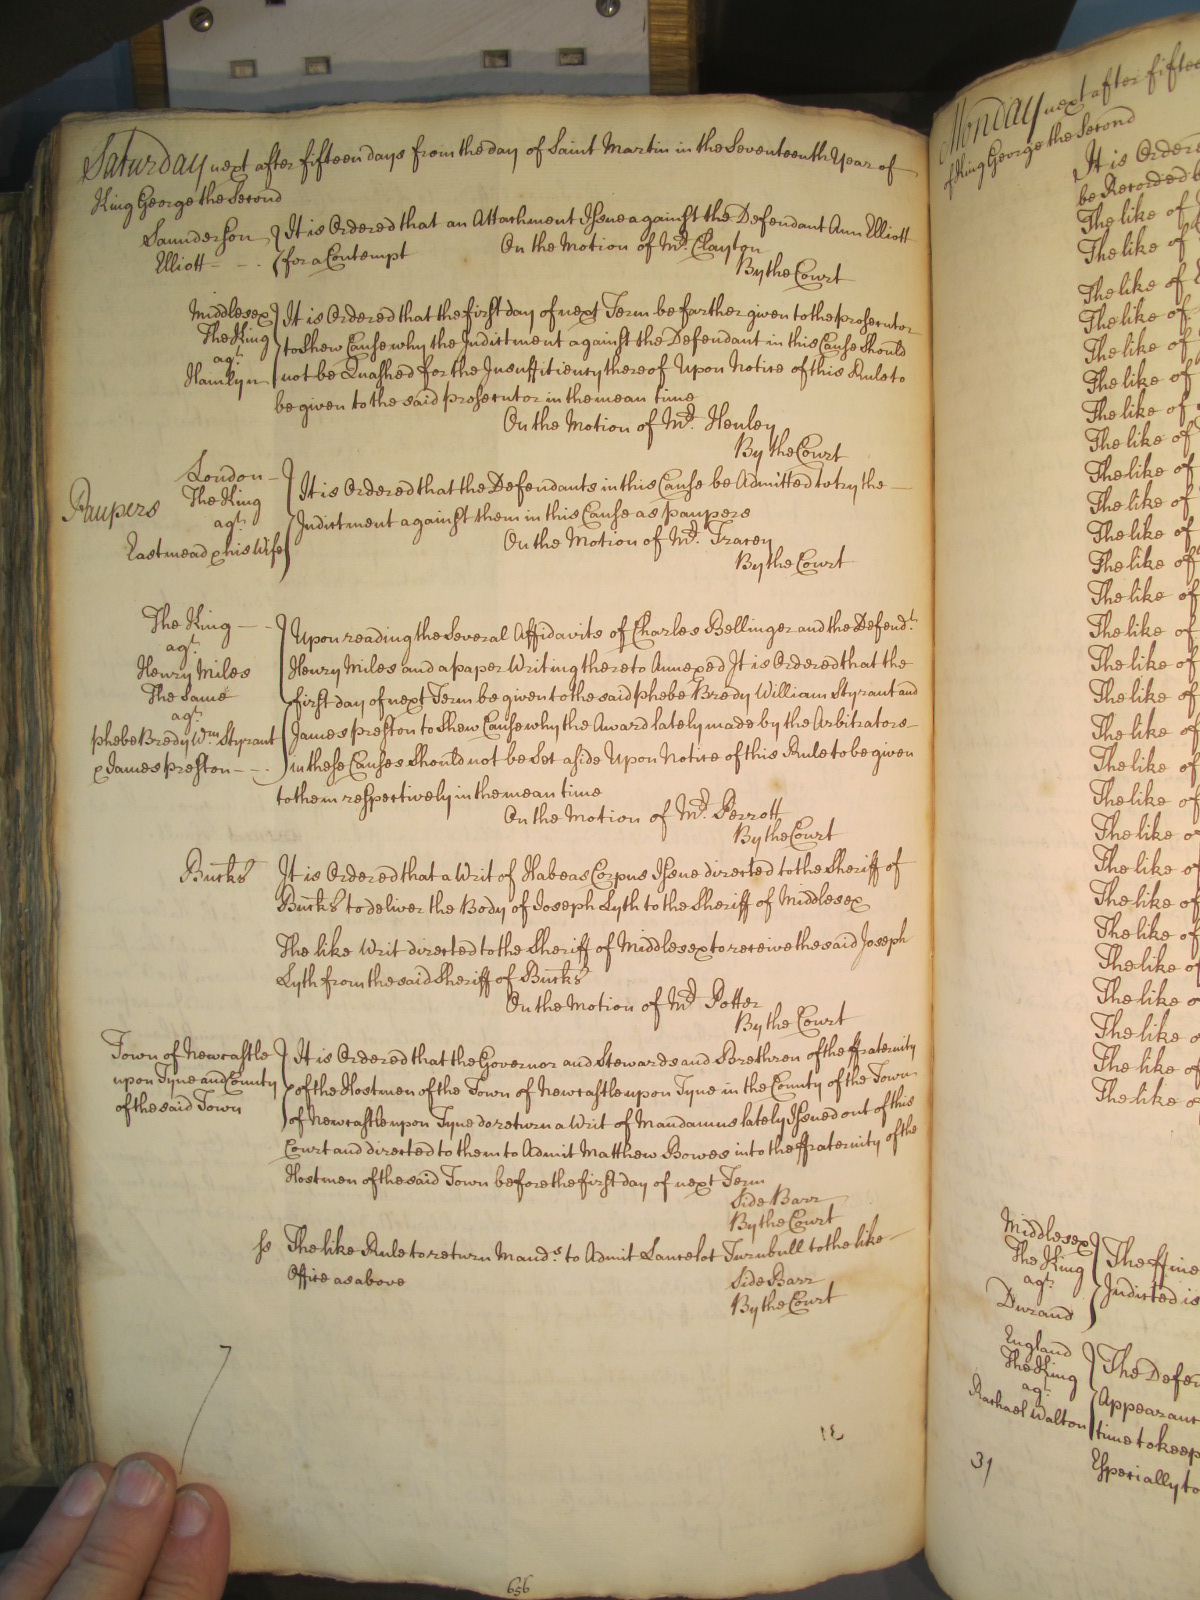 Saturday next after fifteen days from the day of Saint Martin in the Seventeenth Year of
King George the Second
Saunderson
Elliott
It is Ordered that an Attachment Issue against the Defendant Ann Elliott
for a Contempt
On the Motion of Mr. Clayton
By the Court
Middlesex
The King
agt.
Hamlyn
It is Ordered that the first day of next Term be farther given to the prosecutor
to shew Cause why the Indictment against the Defendant in this Cause should
not be Quashed for the Insufficiency thereof Upon Notice of this Rule to
be given to the said prosecutor in the mean time
On the Motion of Mr. Henley
By the Court
Paupers
London
The King
agt.
Eastmead & his Wife
It is Ordered that the Defendants in this Cause be Admitted to try the
Indictment against them in this Cause as paupers
On the Motion of Mr. Tracey
By the Court
The King
agt.
Henry Miles
The Same
agt.
phebe Bredy Wm Styrant
& James preston
Upon reading the Several Affidavits of Charles Bellinger and the Defendt.
Henry Miles and a paper Writing thereto Annexed It is Ordered that the
first day of next Term be given to the said phebe Bredy William Styrant and
James preston to shew Cause why the Award lately made by the Arbitrators
in these Causes should not be Set aside Upon Notice of this Rule to be given
to them respectively in the mean time
On the Motion of Mr. Perrott
By the Court
Bucks
It is Ordered that a Writ of Habeas Corpus Issue directed to the Sheriff of
Bucks to deliver the Body of Joseph Lyth to the Sheriff of Middlesex
The like Writ directed to the Sheriff of Middlesex to receive the said Joseph
Lyth from the said Sheriff of Bucks
On the Motion of Mr Potter
By the Court
Town of Newcastle
upon Tyne and County
of the said Town
It is Ordered that the Governor and Stewards and Brethren of the ffraternity
& of the Hostmen of the Town of Newcastle upon Tyne in the County of the Town
of Newcastle upon Tyne do return a Writ of Mandamus lately Issued out of this
Court and directed to them to Admit Matthew Bowes into the ffraternity of the
Hostmen of the said Town before the first day of next Term
Side Barr
By the Court
ss The like Rule to return Mands. to Admit Lancelot Turnbull to the like
Office as above
Side Barr
By the Court
7
656
Monday next after fiftee
of King George the Second
It is Ordere
be Recorded b
The like of
The like of
The like of
The like of
The like of
The like of
The like of
The like of
The like of
The like of
The like of
The like of
The like of
The like of
The like of
The like of
The like of
The like of
The like of
The like of
The like of
The like of
The like of
The like o
The like o
The like o
The like o
The like o
Middlesex
The King
agt.
Durand
The ffine
Indicted is
England
The King
agt.
Rachael Walton
The Defen
Appearanc
time to keep
Especially to
31